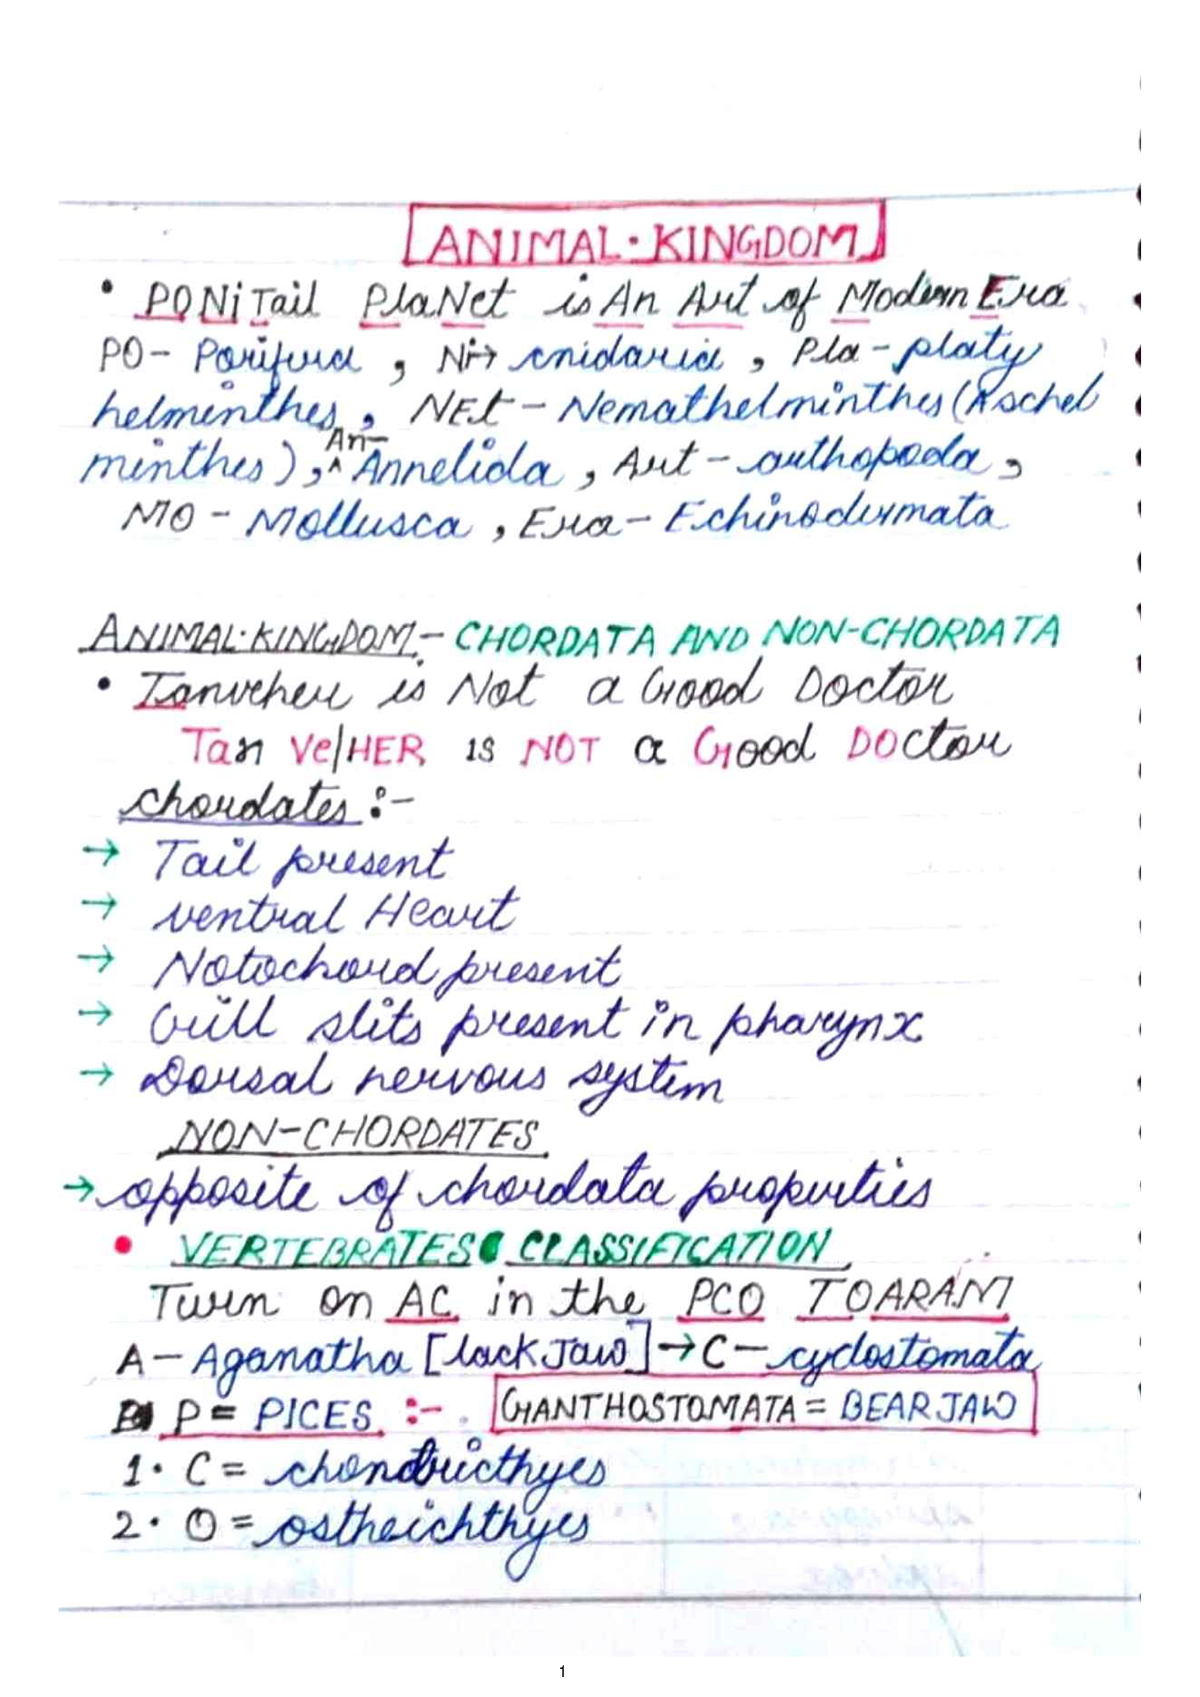 ANIMAL·KINGDOM
• PONiTail PlaNet is An Art of Modern Era
PO- Porifera, Ni→ cnidaria, Pla - platy
helminthes, NEt - Nemathelminthes (Aschel
minthes), An- Annelida, Art - arthopoda,
MO - Mollusca, Era - Echinodermata
ANIMAL·KINGDOM - CHORDATA AND NON-CHORDATA
• Tanveher is Not a Good Doctor
Tan Ve/HER is NOT a Good DOctor
chordates :-
→ Tail present
→ ventral Heart
→ Notochord present
→ Gill slits present in pharynx
→ Dorsal nervous system
NON-CHORDATES
→ opposite of chordata properties
• VERTEBRATES CLASSIFICATION
Turn on AC in the PCO TOARAM
A - Aganatha [lack Jaw] → C - cyclostomata
P = PICES :- GNANTHOSTOMATA = BEAR JAW
1. C = chondricthyes
2. O = ostheichthyes
1